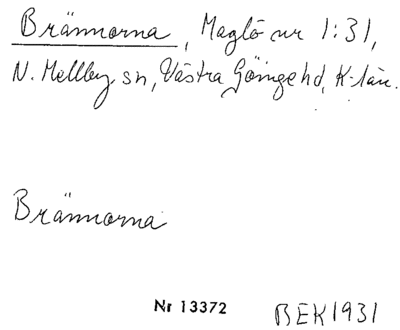 Brännorna, Maglö nr 1:31,
N. Mellby sn, Västra Göinge hd, K-län.
Brännorna
Nr 13372 BEK 1931